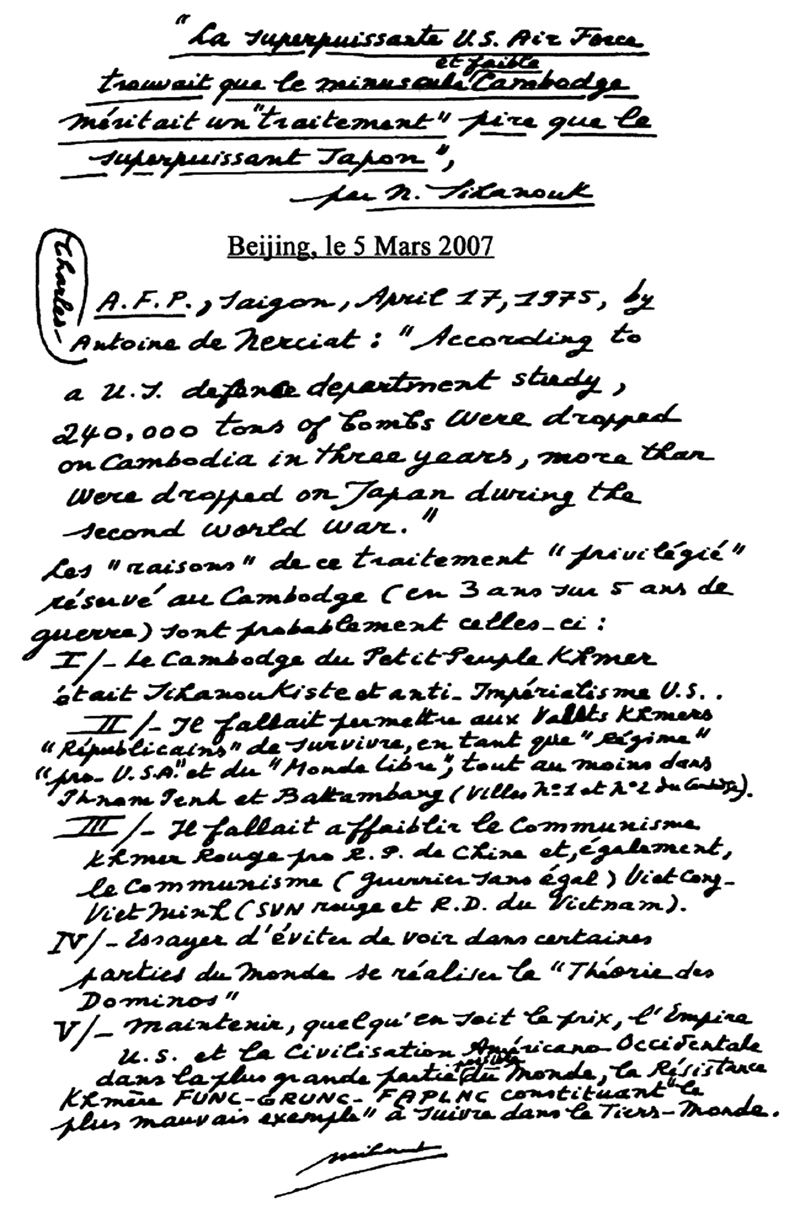 "La superpuissante U.S. Air Force
et faible
trouvait que le minuscule Cambodge
méritait un "traitement" pire que le
superpuissant Japon",
par N. Sihanouk
Beijing, le 5 Mars 2007
Charles-
A.F.P., Saigon, April 17, 1975, by
Antoine de Nerciat : "According to
a U.S. defence department study,
240,000 tons of bombs were dropped
on Cambodia in three years, more than
were dropped on Japan during the
second world war."
Les "raisons" de ce traitement "privilégié"
réservé au Cambodge (en 3 ans sur 5 ans de
guerre) sont probablement celles-ci :
I/- Le Cambodge du Petit Peuple Khmer
était Sihanoukiste et anti-Impérialisme U.S..
II/- Il fallait permettre aux Valets Khmers
"Républicains" de survivre, en tant que "Régime"
"pro-U.S.A." et du "Monde libre", tout au moins dans
Phnom Penh et Battambang (Villes n°1 et n°2 du Cambodge).
III/- Il fallait affaiblir le Communisme
Khmer Rouge pro R.P. de Chine et, également,
le Communisme (guerrier sans égal) Viet Cong-
Viet Minh (SVN rouge et R.D. du Vietnam).
IV/- Essayer d'éviter de voir dans certaines
parties du Monde se réaliser la "Théorie des
Dominos"
V/- Maintenir, quelqu'en soit le prix, l'Empire
U.S. et la Civilisation Américano-Occidentale
possible
dans la plus grande partie du Monde, la Résistance
Khmère FUNC-GRUNC-FAPLNC constituant "le
plus mauvais exemple" à suivre dans le Tiers-Monde.